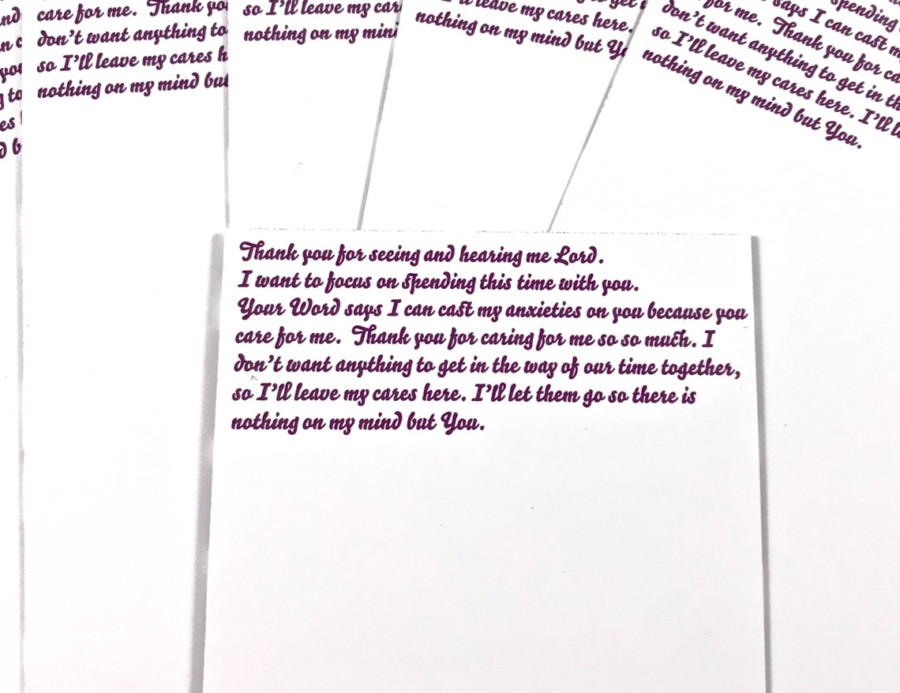 care for me. Thank yo
don't want anything to
so I'll leave my cares h
nothing on my mind but
so I'll leave my car
nothing on my min
leave my cares here.
nothing on my mind but Yo
spending
says I can cast m
for me. Thank you for ca
don't want anything to get in th
so I'll leave my cares here. I'll l
nothing on my mind but You.
Thank you for seeing and hearing me Lord.
I want to focus on spending this time with you.
Your Word says I can cast my anxieties on you because you
care for me. Thank you for caring for me so so much. I
don't want anything to get in the way of our time together,
so I'll leave my cares here. I'll let them go so there is
nothing on my mind but You.